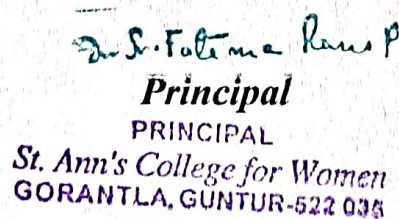 Dr Sr. Fatima Rani P
Principal
PRINCIPAL
St. Ann's College for Women
GORANTLA, GUNTUR-522 035